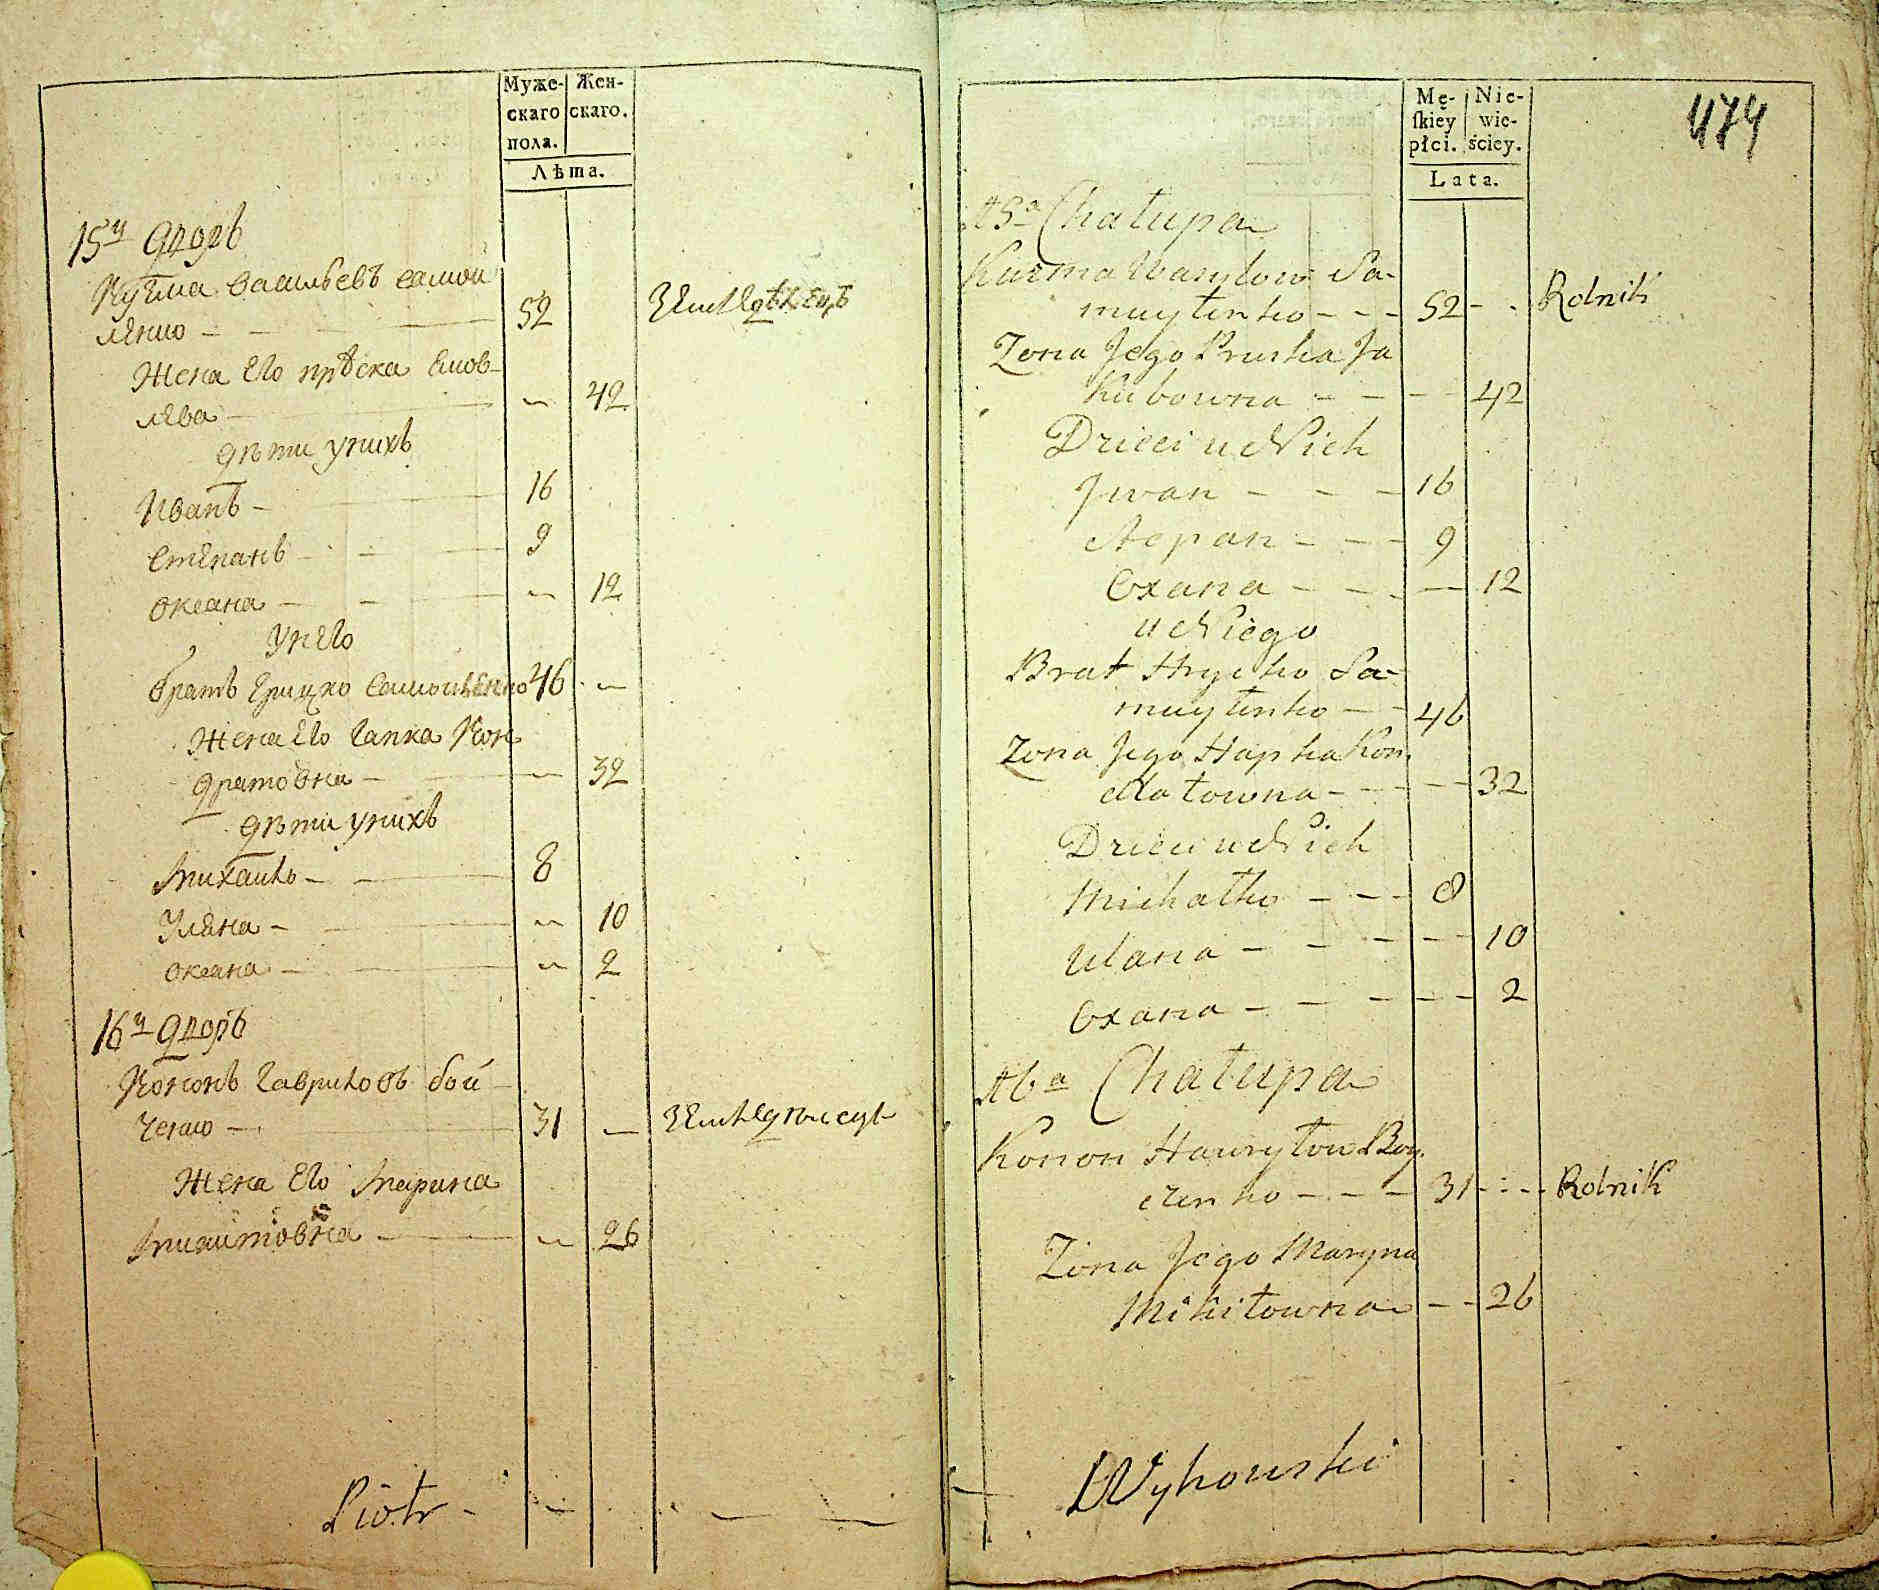 Муже-
скаго
пола.
Жен-
скаго.
Лѣта.
15й дворъ
Кузма Васильевъ Самой
ленко — 52 Земледѣлецъ
Жена Его Прѣска Яков-
лева — 42
дѣти унихъ
Иванъ — 16
Степанъ — 9
Оксана — 12
унего
братъ Грицко Самойленко 46
Жена Его Гапка Кон
дратовна — 32
дѣти унихъ
Михайло — 8
Уляна — 10
Оксана — 2
16й дворъ
Кононъ Гавриловъ Бой
ченко — 31 — Земледѣлецъ
Жена Его Марина
Микитовна — 26
Piotr - — — —
474
Mę-
ſkiey
płci.
Nie-
wie-
ściey.
Lata.
15a Chałupa
Kuzma Wasylow Sa-
muyłenko - - - 52 - - Rolnik
Zona Jego Pruska Ja
kubowna - - - - 42
Dzieci u Nich
Jwan - - - 16
Stepan - - - 9
Oxana - - - — 12
u Niego
Brat Hrycko Sa-
muyłenko - - 46
Zona Jego Hapka Kon
dratowna - - - - - 32
Dzieci u Nich
Michałko - - - 8
Ulana - - - - - 10
Oxana - - - - - 2
16a Chałupa
Konon Hawryłow Boy.
czenko - - - 31 - - - Rolnik
Zona Jego Maryna
Mikitowna - - 26
Wyhowski